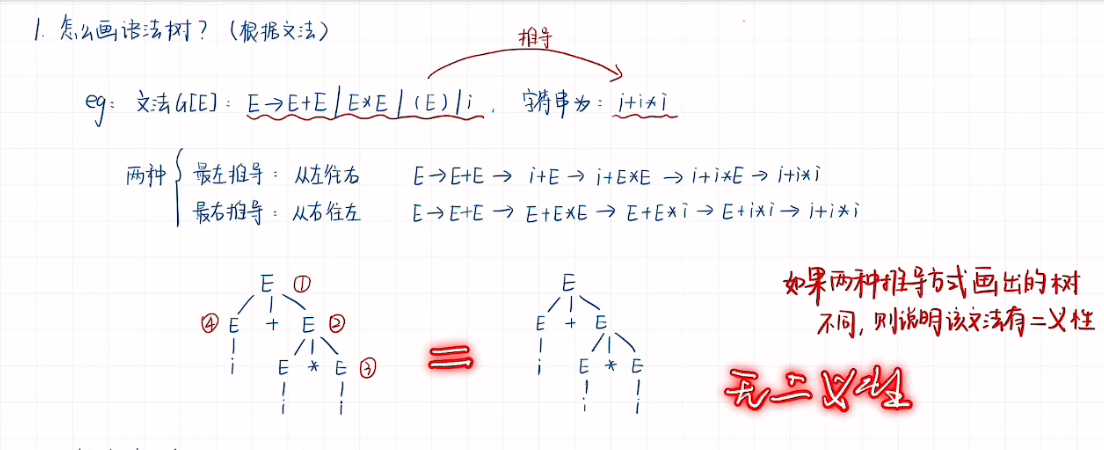 1. 怎么画语法树？（根据文法）
推导
eg: 文法G[E]: E→E+E | E*E | (E) | i, 字符串为: i+i*i
两种
最左推导: 从左往右 E→E+E → i+E → i+E*E → i+i*E → i+i*i
最右推导: 从右往左 E→E+E → E+E*E → E+E*i → E+i*i → i+i*i
E ①
④ E + E ②
i E * E ③
i i
=
E
E + E
i E * E
i i
如果两种推导方式画出的树
不同, 则说明该文法有二义性
无二义性